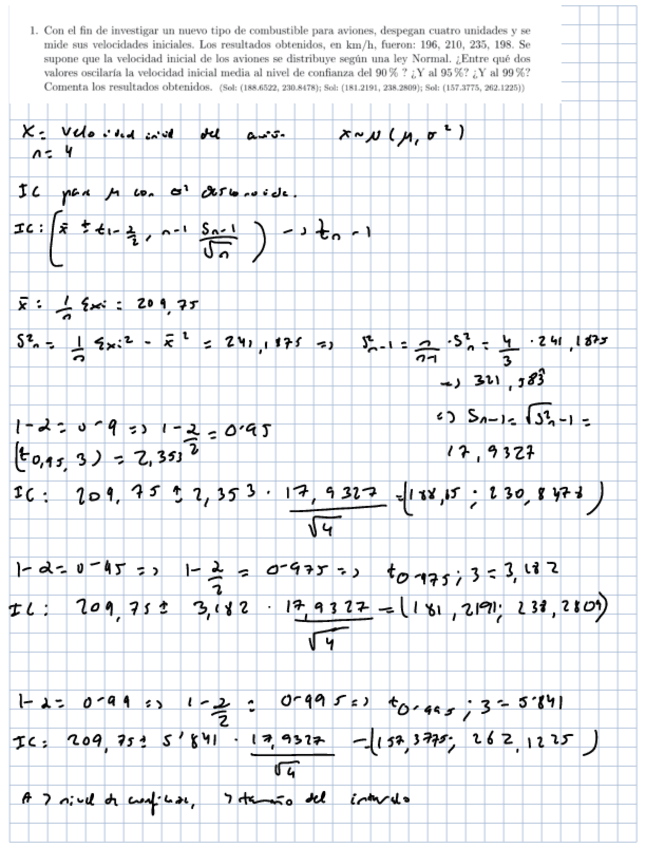 1. Con el fin de investigar un nuevo tipo de combustible para aviones, despegan cuatro unidades y se
mide sus velocidades iniciales. Los resultados obtenidos, en km/h, fueron: 196, 210, 235, 198. Se
supone que la velocidad inicial de los aviones se distribuye según una ley Normal. ¿Entre qué dos
valores oscilaría la velocidad inicial media al nivel de confianza del 90 % ? ¿Y al 95 %? ¿Y al 99 %?
Comenta los resultados obtenidos. (Sol: (188.6522, 230.8478); Sol: (181.2191, 238.2809); Sol: (157.3775, 262.1225))
X = velocidad inicial del avión X ~ N (μ, σ²)
n = 4
IC para μ con σ² desconocida.
IC: [x̄ ± t1-α/2, n-1 Sn-1/√n) → tn-1
x̄ : 1/n Σxi = 209,75
S²n = 1/n Σxi² - x̄² = 241,1875 => S²n-1 = n/n-1 · S²n = 4/3 · 241,1875
→ 321,583
=> Sn-1 = √S²n-1 =
17,9327
1-α = 0'9 => 1-α/2 = 0'95
(t0,95, 3) = 2,353
IC: 209,75 ± 2,353 · 17,9327/√4 = (188,65 ; 230,8478)
1-α = 0'95 => 1-α/2 = 0'975 => t0'975; 3 = 3,182
IC: 209,75 ± 3,182 · 17,9327/√4 = (181,2191; 238,2809)
1-α = 0'99 => 1-α/2 = 0'995 => t0'995; 3 = 5'841
IC: 209,75 ± 5'841 · 17,9327/√4 = (157,3775; 262,1225)
A > nivel de confianza, > tamaño del intervalo